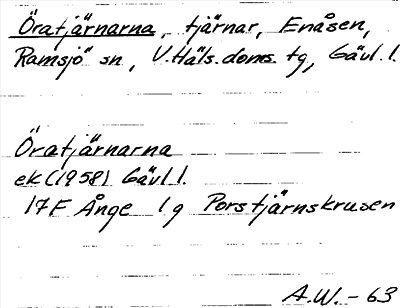 Öratjärnarna, tjärnar, Enåsen,
Ramsjö sn, V.Häls.doms.tg, Gävl.l.
Öratjärnarna
ek(1958) Gävl l.
17F Ånge 1g Porstjärnskrusen
A.W. - 63